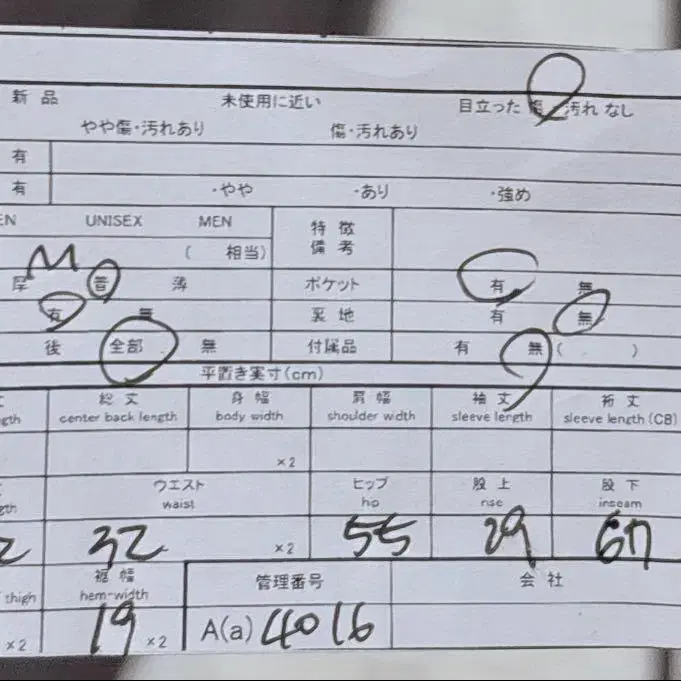 新品 未使用に近い 目立った 傷・汚れ なし
やや傷・汚れあり 傷・汚れあり
有
有 ・やや ・あり ・強め
EN UNISEX MEN 特徴
備考
M ( 相当)
厚 普 薄 ポケット 有 無
有 無 裏地 有 無
後 全部 無 付属品 有 無 ( )
平置き実寸(cm)
丈 総丈 身幅 肩幅 袖丈 裄丈
gth center back length body width shoulder width sleeve length sleeve length (CB)
×2
ウエスト ヒップ 股上 股下
gth waist hip rise inseam
2 32 ×2 55 29 67
裾幅 管理番号 会社
thigh hem-width
×2 19 ×2 A(a) 4016